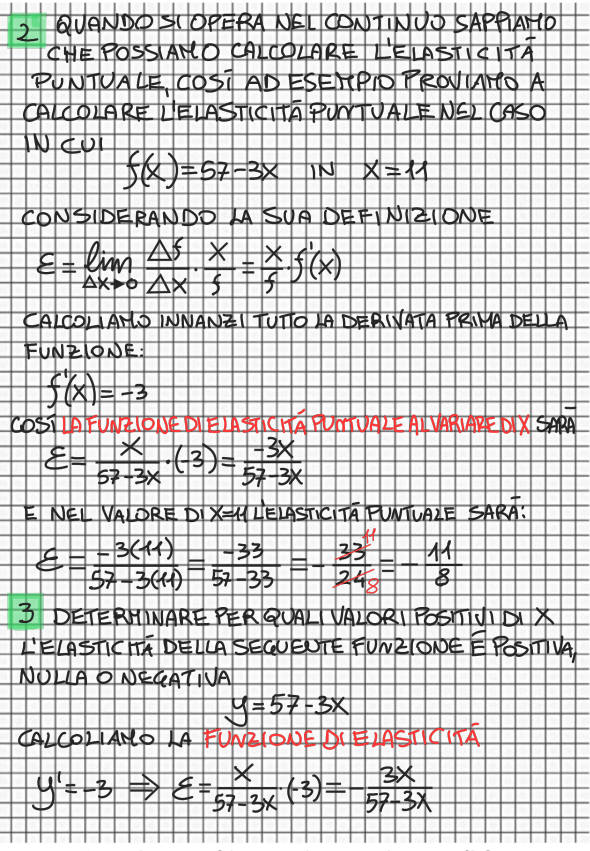 2 QUANDO SI OPERA NEL CONTINUO SAPPIAMO
CHE POSSIAMO CALCOLARE L'ELASTICITÀ
PUNTUALE, COSÌ AD ESEMPIO PROVIAMO A
CALCOLARE L'ELASTICITÀ PUNTUALE NEL CASO
IN CUI
f(x)=57-3x IN x=11
CONSIDERANDO LA SUA DEFINIZIONE
ε = lim Δx→0 Δf/Δx · x/f = x/f · f'(x)
CALCOLIAMO INNANZI TUTTO LA DERIVATA PRIMA DELLA
FUNZIONE:
f'(x)=-3
COSÌ LA FUNZIONE DI ELASTICITÀ PUNTUALE AL VARIARE DI X SARÀ
ε = x/57-3x · (-3) = -3x/57-3x
E NEL VALORE DI X=11 L'ELASTICITÀ PUNTUALE SARÀ:
ε = -3(11)/57-3(11) = -33/57-33 = - 33/24 11 8 = - 11/8
3 DETERMINARE PER QUALI VALORI POSITIVI DI X
L'ELASTICITÀ DELLA SEGUENTE FUNZIONE È POSITIVA,
NULLA O NEGATIVA
y=57-3x
CALCOLIAMO LA FUNZIONE DI ELASTICITÀ
y'=-3 ⇒ ε = x/57-3x · (-3) = - 3x/57-3x